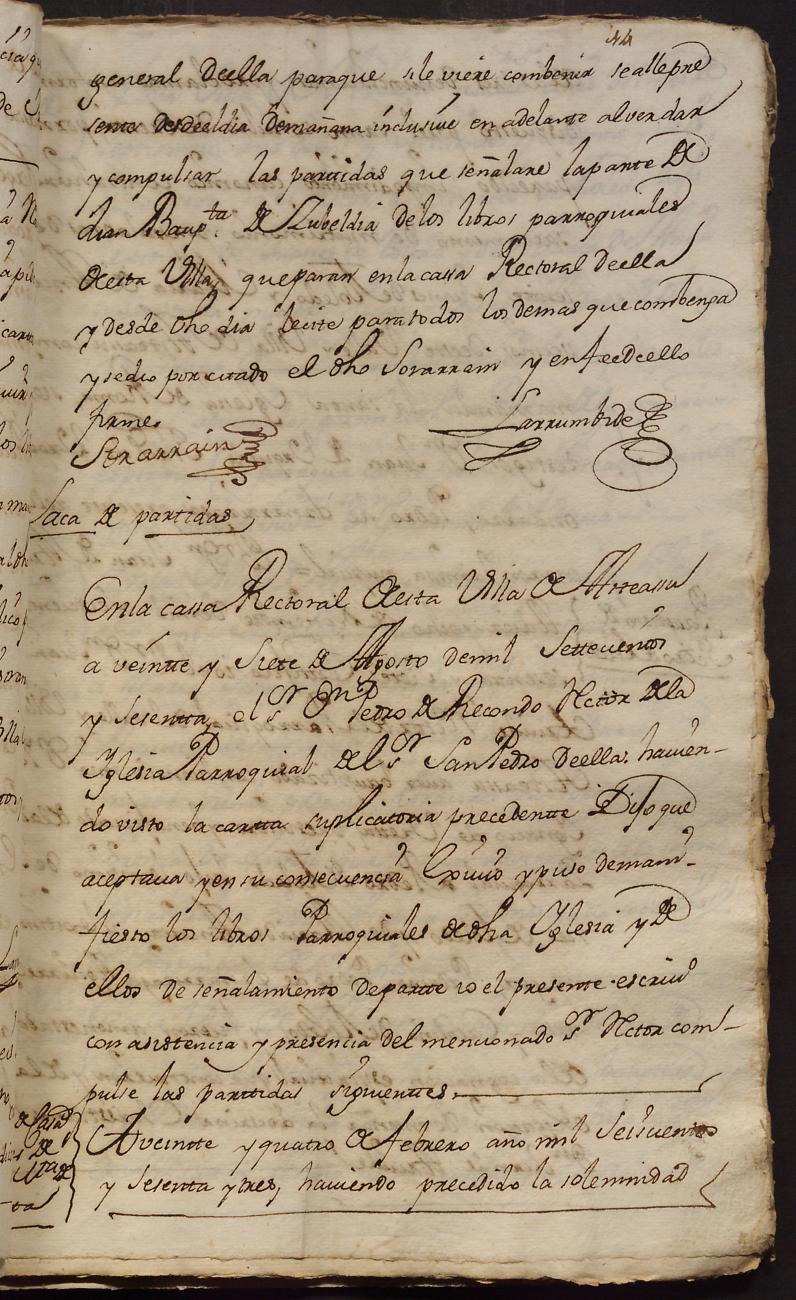 44
general deella paraque sile viere combenir sealle pre
sente desde el dia de mañana inclusive en adelante alver dar
y compulsar las partidas que señalare la parte de
Juan Bapta. de Zubeldia de los libros parroquiales
de esta Villa, que paran en la cassa Rectoral de ella
y desde dho dia lecite para todos los demas que combenga
y sedio por citado el dho Sorarrain y en fee de ello
firme
Sorarrain Larrumbide
Saca de partidas
En la cassa Rectoral de esta Villa de Arteassu
a veintte y siete de Agosto de mil Settecientos
y Sesentta, el Sr. Dn. Pedro de Recondo Rector de la
Yglesia Parroquial del Sr. San Pedro de ella: havien-
do visto la cartta suplicatoria precedentte Dijo que
aceptava y en su consecuencia Exivio y puso de mani-
fiesto los libros Parroquiales de dha Yglesia y de
ellos de señalamiento de partte io el presente escrivo
con asistencia y presencia del mencionado Sr. Rctor com-
pulse las parttidas siguienttes.
A veintte y quatro de febrero año mil Seiscientos
y Sesentta y tres, haviendo precedido la solemnidad